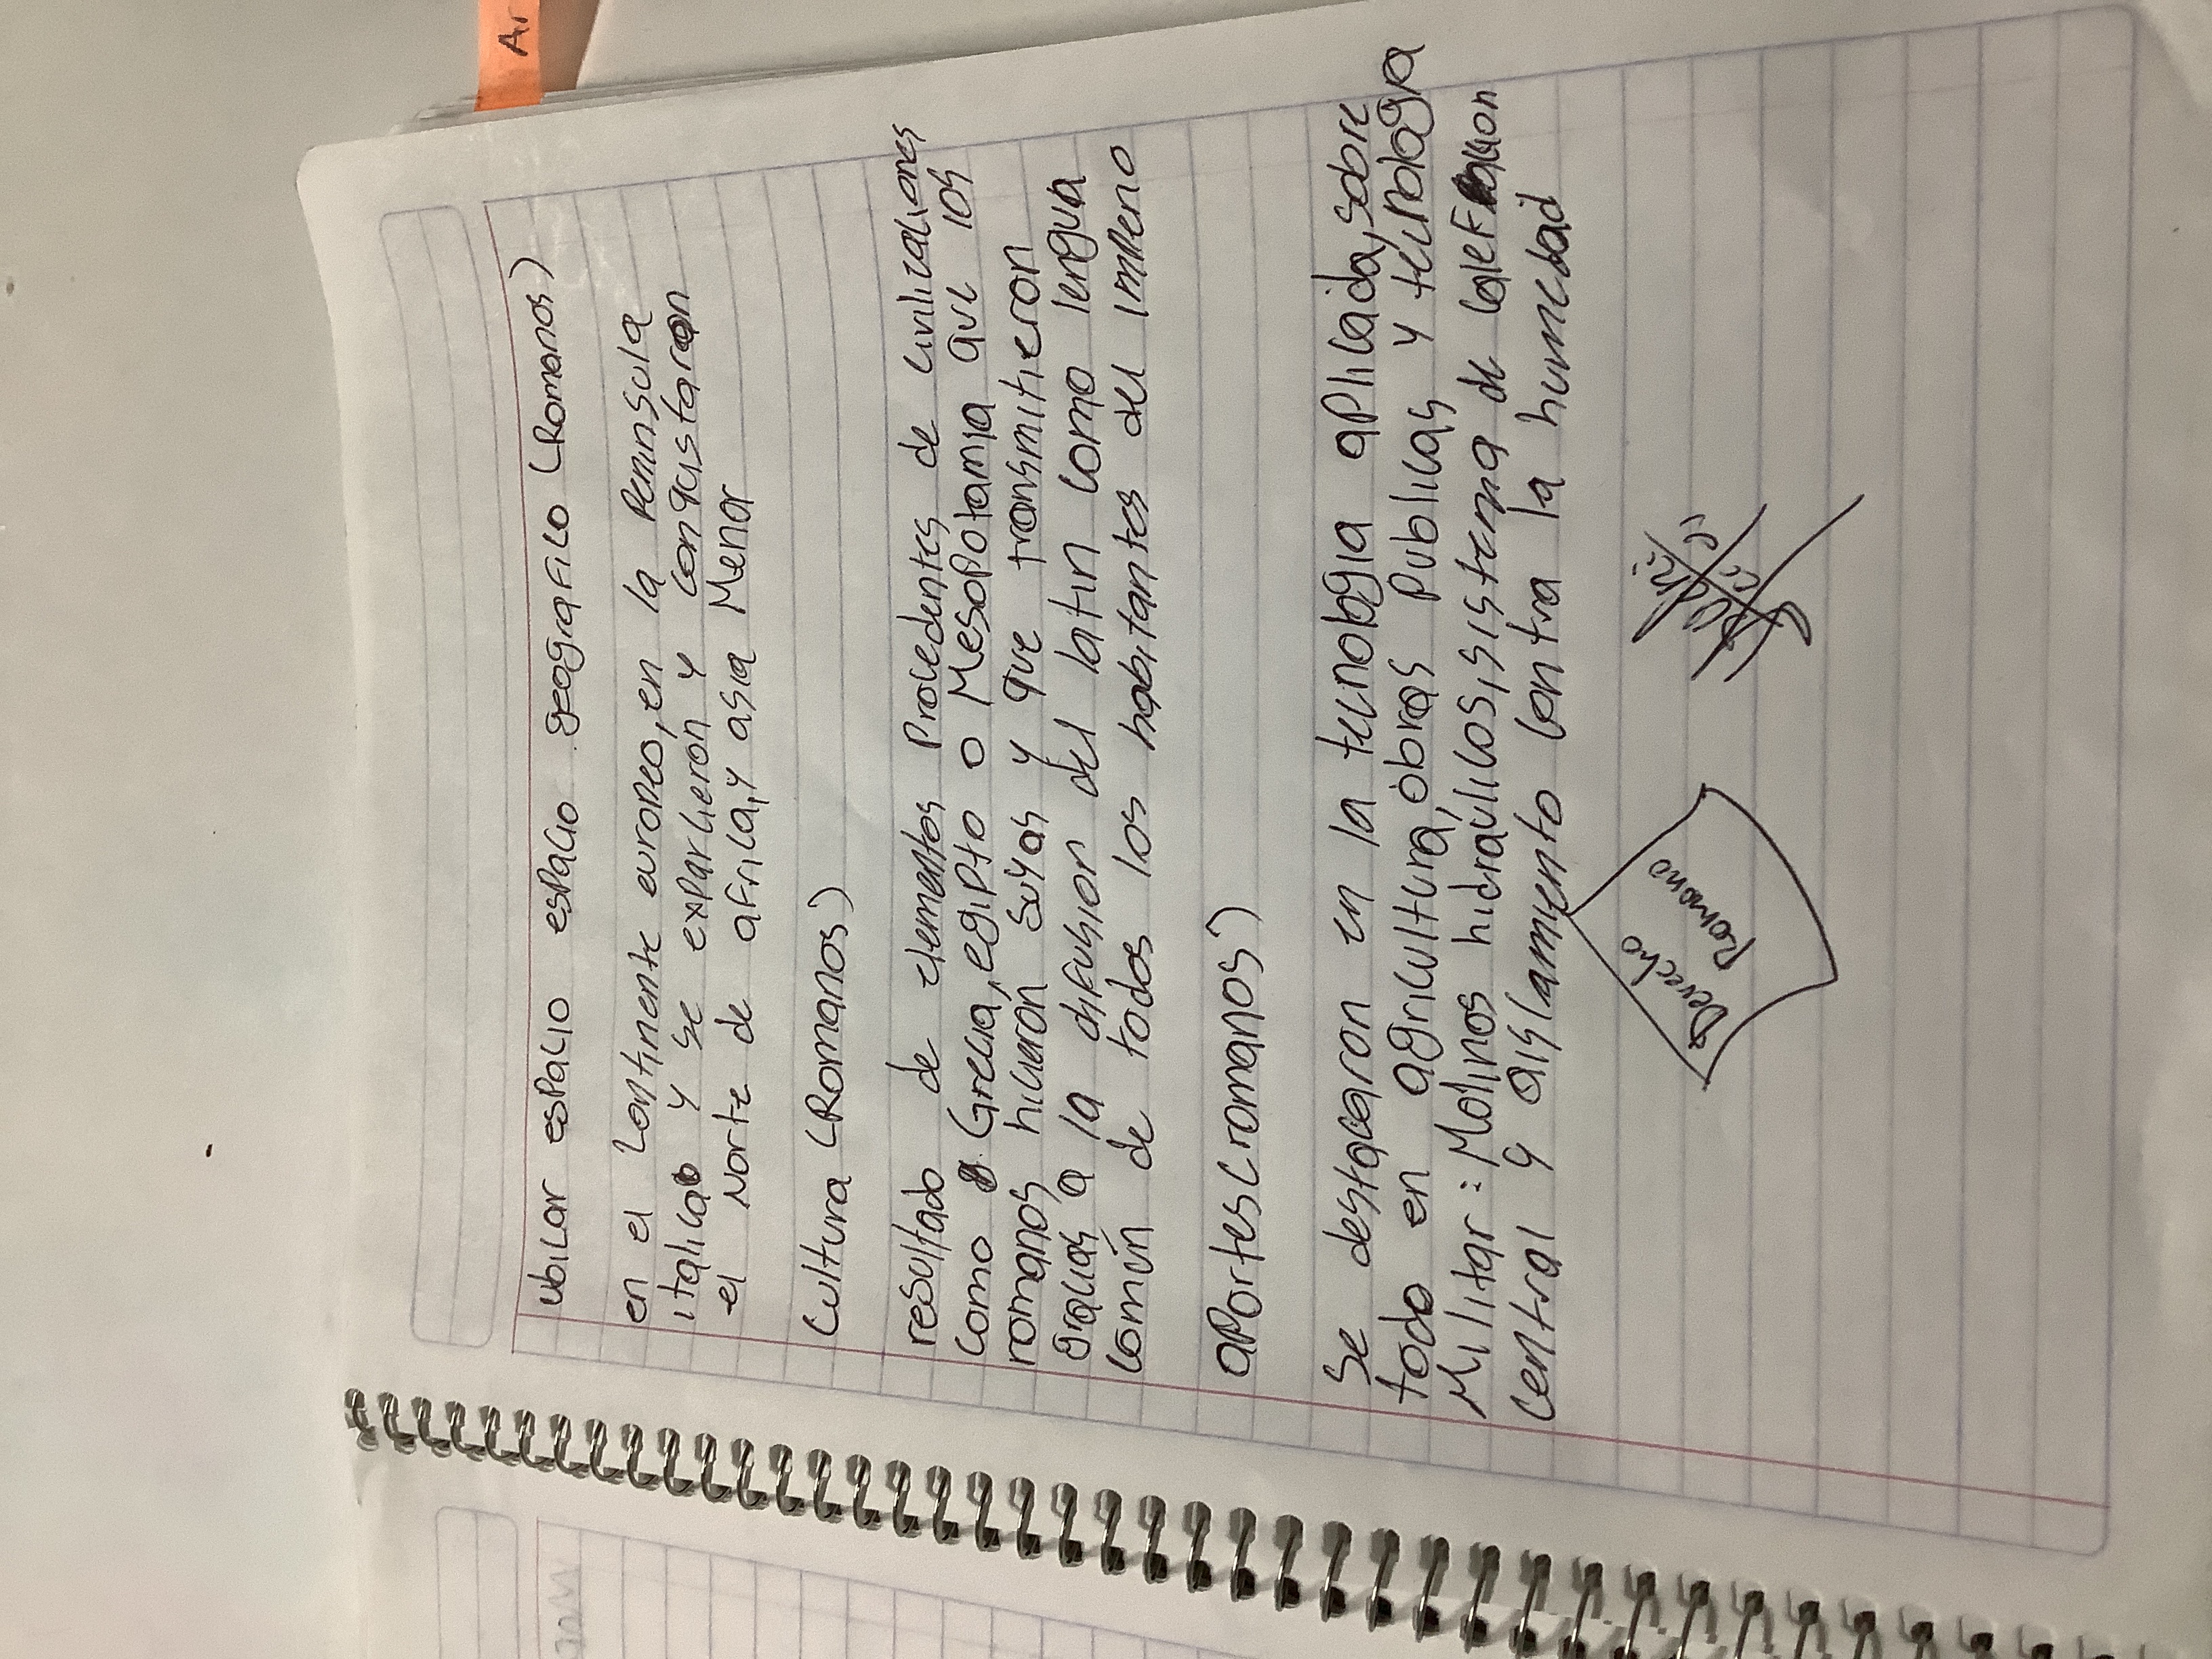 Ar
ubicar espacio espacio geografico (Romanos)
en el continente europeo, en la Peninsula
italica y se exparcieron y conquistaron
el Norte de africa, y asia Menor
Cultura (Romanos)
resultado de elementos Procedentes de civilizaciones
como Grecia, egipto o Mesopotamia que los
romanos hicieron suyas y que transmitieron
gracias a la difusion del latin como lengua
común de todos los habitantes del imperio
aportes (romanos)
Se destacaron en la tecnologia aplicada, sobre
todo en agricultura, obras publicas y tecnologia
Militar: Molinos hidraúlicos, sistema de calefaccion
central y aislamiento contra la humedad
Derecho
Romano